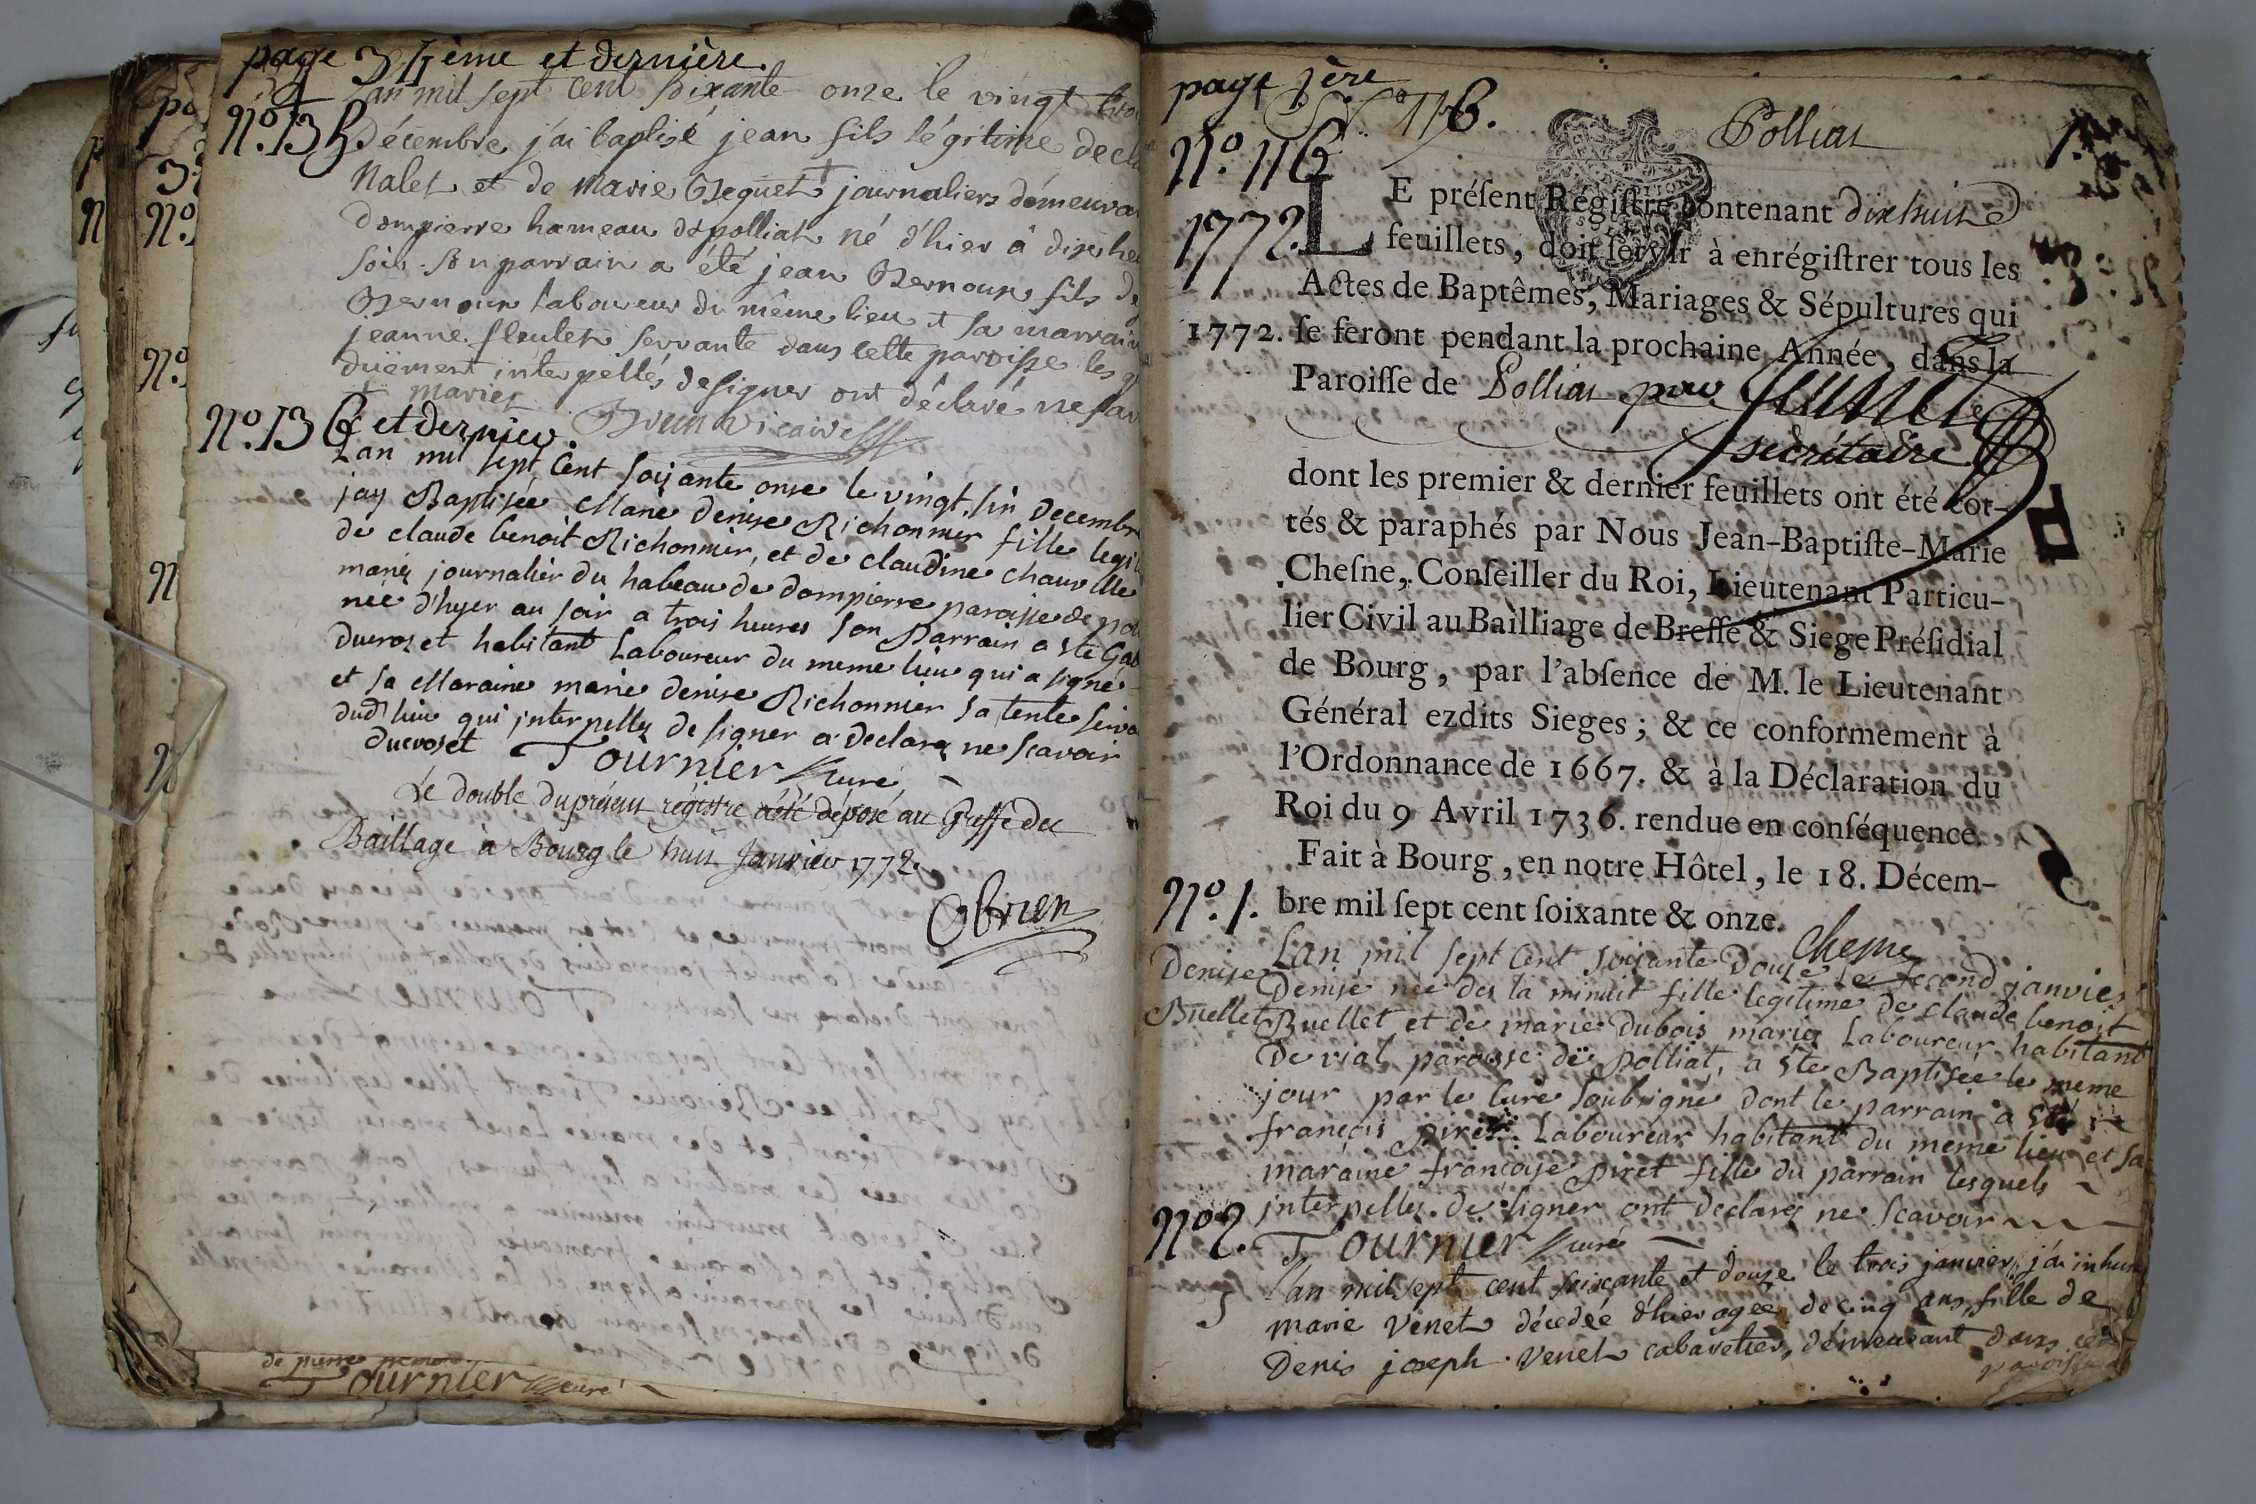 page 34ème et dernière.
Lan mil sept cent soixante onze le vingt trois
n.o 135. Décembre j'ai baptisé jean fils légitime de cla
Nalet et de marie Beguet + journaliers démeurant
Dompierre hameau de polliat né d'hier à dix he
soir. Son parrain a été jean Bernoux fils de
Bernoux laboureur du même lieu et sa marraine
jeanne fleutet servante dans cette paroisse les q
duëment interpellés de signer ont déclaré ne sav
+ mariés Brun vicaire
n.o 136 et dernier.
Lan mil sept cent soisante onse le vingt sin decembre
jay Baptisée Marie denise Richonnier fille legit
de claude benoit Richonnier, et de claudine chaurelle
mariez journalier du habeau de dompierre paroisse de pol
née d'hyer au soir a trois heures son Parrain a ste Gab
ducroset habitant Laboureur du meme lieu qui a signé
et sa Maraine marie denise Richonnier sa tente serva
dud' lieu qui interpellez de signer a declarez ne scavoir
ducroset Tournier curé
Le double du présent régistre a été déposé au Greffe du
Bailliage à Bourg le huit Janvier 1772
Obrien
de pierre
Tournier curé
page 1ère
116.
Polliat
n.o 116
1772.
LE préſent Régiſtre contenant dixhuit
feuillets, doit ſervir à enrégiſtrer tous les
Actes de Baptêmes, Mariages & Sépultures qui
1772. ſe feront pendant la prochaine Année, dans la
Paroiſſe de Polliat par
secrétaire
dont les premier & dernier feuillets ont été cot-
tés & paraphés par Nous Jean-Baptiſte-Marie
Cheſne, Conſeiller du Roi, Lieutenant Particu-
lier Civil au Bailliage de Breſſe & Siege Préſidial
de Bourg, par l'abſence de M. le Lieutenant
Général ezdits Sieges; & ce conformement à
l'Ordonnance de 1667. & à la Déclaration du
Roi du 9 Avril 1736. rendue en conſéquence.
Fait à Bourg, en notre Hôtel, le 18. Décem-
bre mil ſept cent ſoixante & onze.
chesne
n.o 1.
Denise
Buellet
Lan mil sept cent soisante douse le second janvier
Denise née des la minuit fille legitime de claude benoit
Buellet et de marie dubois mariez Laboureur habitant
de vial paroisse de polliat, a ste Baptisée le meme
jour par le curé soubsigné dont le parrain a sté
françois piret Laboureur habitant du meme lieu et sa
maraine françoise piret fille du parrain lesquels
interpellez de signer ont declarez ne scavoir
Tournier curé
n.o 2.
Lan mil sept cent soixante et douze le trois janvier j'ai inhum
marie Venet décedée d'hier agée de cinq ans, fille de
Denis joseph Venet cabaretier, démeurant dans cette
paroisse